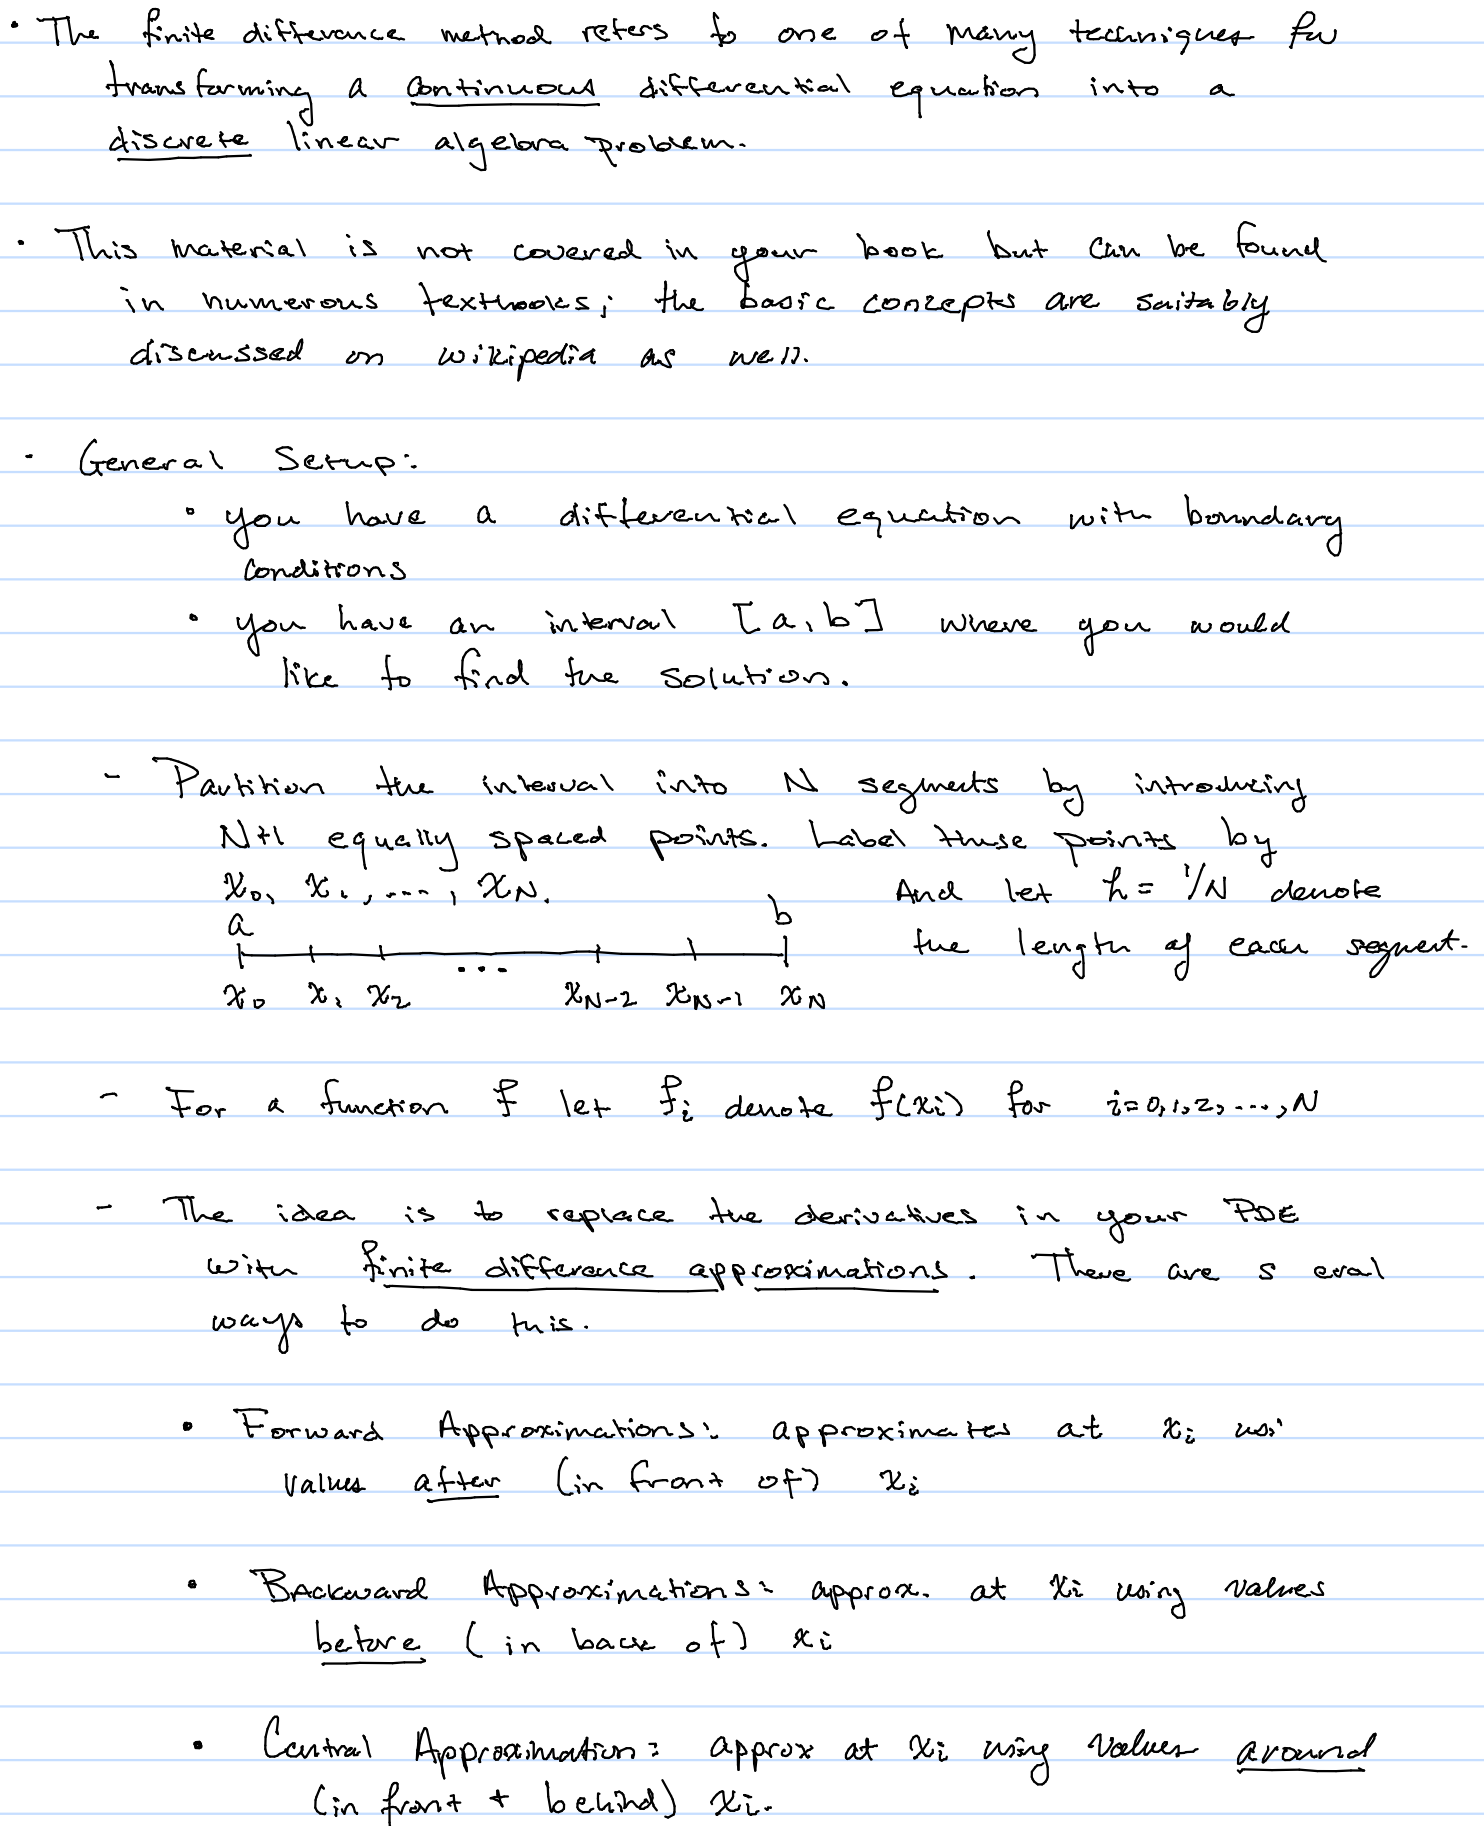 • The finite difference method refers to one of many techniques for
transforming a continuous differential equation into a
discrete linear algebra problem.
• This material is not covered in your book but can be found
in numerous textbooks; the basic concepts are suitably
discussed on wikipedia as well.
• General Setup:
• you have a differential equation with boundary
conditions
• you have an interval [a,b] where you would
like to find the solution.
- Partition the interval into N segments by introducing
N+1 equally spaced points. Label these points by
x₀, x₁, ..., x_N. And let h = 1/N denote
the length of each segment.
a b
...
x₀ x₁ x₂ x_N-2 x_N-1 x_N
- For a function f let f_i denote f(x_i) for i=0,1,2,...,N
- The idea is to replace the derivatives in your PDE
with finite difference approximations. There are s eral
ways to do this.
• Forward Approximations: approximates at x_i usi
values after (in front of) x_i
• Backward Approximations: approx. at x_i using values
before (in back of) x_i
• Central Approximation: approx at x_i using values around
(in front + behind) x_i.